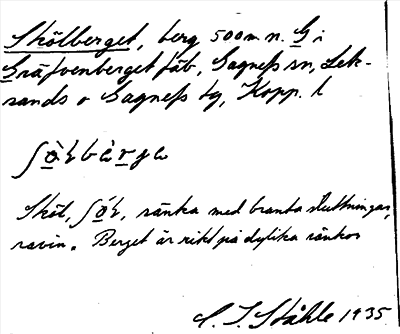 Skölberget, berg 500 m n. G i
Gräfvenberget fäb, Gagnefs sn, Lek-
sands o Gagnefs tg, Kopp. l
Sköl, ränka med branta sluttningar,
ravin. Berget är rikt på dylika ränkor
C. I. Ståhle 1935